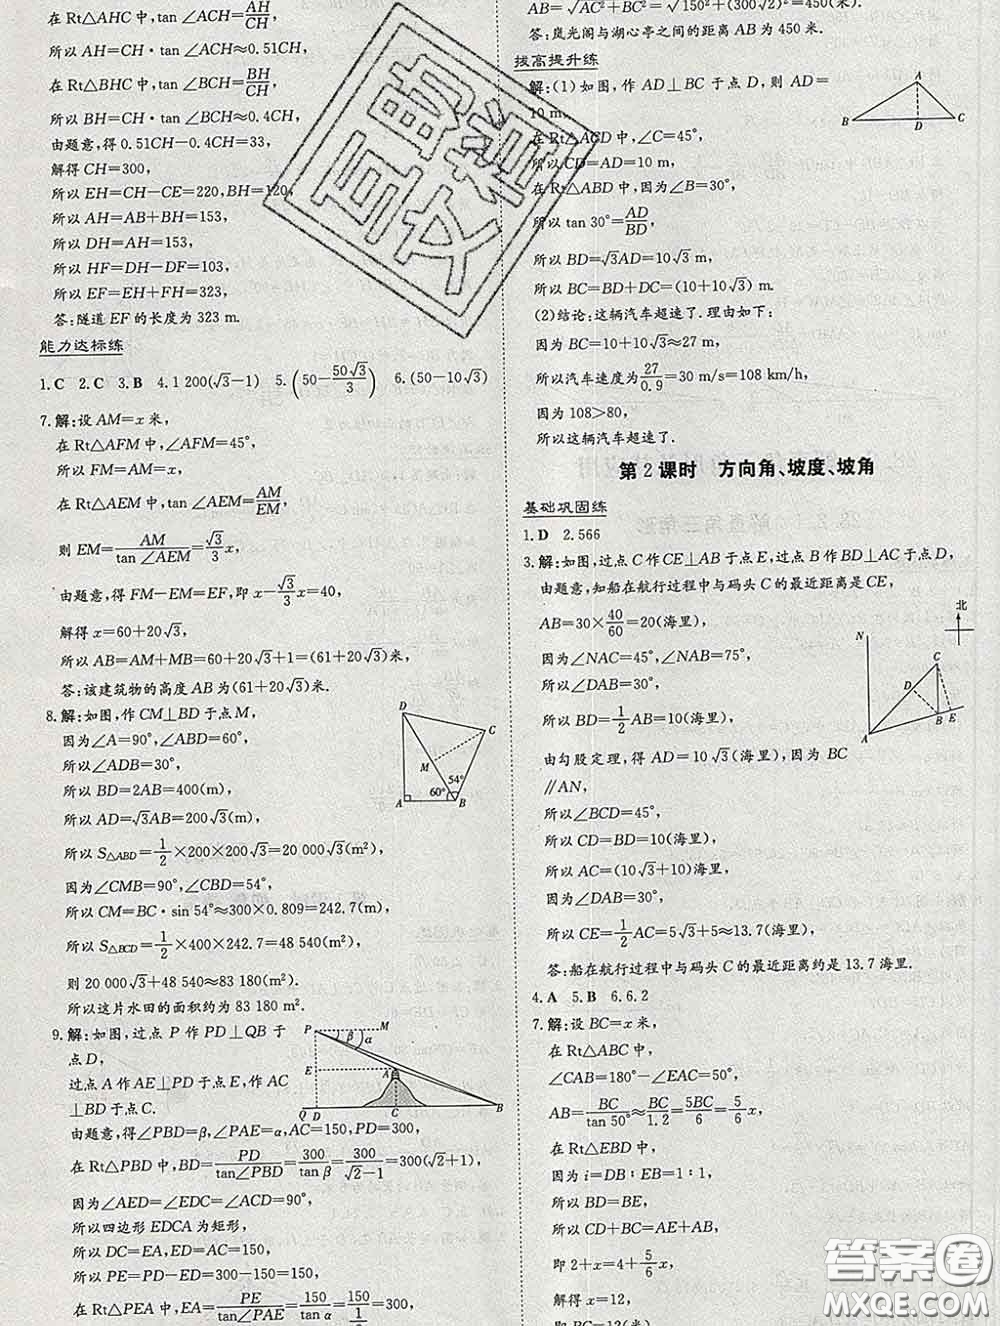 在 Rt△ACH 中,tan ∠ACH=AH/CH,
所以 AH=CH·tan ∠ACH≈0.51CH,
在 Rt△AHC 中,tan ∠BCH=BH/CH,
所以 BH=CH·tan ∠BCH≈0.4CH,
由题意,得 0.51CH-0.4CH=33,
解得 CH=300,
所以 EH=CH-CE=220,BH=120,
所以 AH=AB+BH=153,
所以 DH=AH=153,
所以 HF=DH-DF=103,
所以 EF=EH+FH=323,
答:隧道 EF 的长度为 323 m.
能力达标练
1.C 2.C 3.B 4.1 200(√3-1) 5.(50-50√3/3) 6.(50-10√3)
7.解:设 AM=x 米,
在 Rt△AFM 中,∠AFM=45°,
所以 FM=AM=x,
在 Rt△AEM 中,tan ∠AEM=AM/EM,
则 EM=AM/tan ∠AEM=√3/3 x,
由题意,得 FM-EM=EF,即 x-√3/3 x=40,
解得 x=60+20√3,
所以 AB=AM+MB=60+20√3+1=(61+20√3)米,
答:该建筑物的高度 AB 为(61+20√3)米.
8.解:如图,作 CM⊥BD 于点 M,
因为∠A=90°,∠ABD=60°,
所以∠ADB=30°,
所以 BD=2AB=400(m),
所以 AD=√3AB=200√3(m),
所以 S△ABD=1/2×200×200√3=20 000√3(m²),
因为∠CMB=90°,∠CBD=54°,
所以 CM=BC·sin 54°≈300×0.809=242.7(m),
所以 S△BCD=1/2×400×242.7=48 540(m²),
则 20 000√3+48 540≈83 180(m²).
所以这片水田的面积约为 83 180 m².
D
C
M
54°
60°
A
B
9.解:如图,过点 P 作 PD⊥QB 于
点 D,
过点 A 作 AE⊥PD 于点 E,作 AC
⊥BD 于点 C.
P
M
β
α
E
A
Q
D
C
B
由题意,得∠PBD=β,∠PAE=α,AC=150,PD=300,
在 Rt△PBD 中,BD=PD/tan∠PBD=300/tan β=300/(√2-1)=300(√2+1),
因为∠AED=∠EDC=∠ACD=90°,
所以四边形 EDCA 为矩形,
所以 DC=EA,ED=AC=150,
所以 PE=PD-ED=300-150=150,
在 Rt△PEA 中,EA=PE/tan∠PAE=150/tan α=150/(1/2)=300,
AB=√(AC²+BC²)=√(150²+(300√2)²)=450.
答:岚光阁与湖心亭之间的距离 AB 为 450 米.
拔高提升练
解:(1)如图,作 AD⊥BC 于点 D,则 AD=
10 m,
在 Rt△ACD 中,∠C=45°,
所以 CD=AD=10 m,
在 Rt△ABD 中,因为∠B=30°,
所以 tan 30°=AD/BD,
所以 BD=√3AD=10√3 m,
所以 BC=BD+DC=(10+10√3)m.
A
B
D
C
(2)结论:这辆汽车超速了.理由如下:
因为 BC=10+10√3≈27(m),
所以汽车速度为27/0.9=30 m/s=108 km/h,
因为 108>80,
所以这辆汽车超速了.
第 2 课时 方向角、坡度、坡角
基础巩固练
1.D 2.566
3.解:如图,过点 C 作 CE⊥AB 于点 E,过点 B 作 BD⊥AC 于点 D,
由题意,知船在航行过程中与码头 C 的最近距离是 CE,
AB=30×40/60=20(海里),
因为∠NAC=45°,∠NAB=75°,
所以∠DAB=30°,
所以 BD=1/2AB=10(海里),
由勾股定理,得 AD=10√3(海里),因为 BC
∥AN,
所以∠BCD=45°,
所以 CD=BD=10(海里),
所以 AC=(10√3+10)海里,
因为∠DAB=30°,
所以 CE=1/2AC=5√3+5≈13.7(海里),
答:船在航行过程中与码头 C 的最近距离约是 13.7 海里.
北
N
C
D
B
E
A
4.A 5.B 6.6.2
7.解:设 BC=x 米,
在 Rt△ABC 中,
∠CAB=180°-∠EAC=50°,
AB=BC/tan 50°≈BC/1.2=5BC/6=5/6 x,
在 Rt△EBD 中,
因为 i=DB:EB=1:1,
所以 BD=BE,
所以 CD+BC=AE+AB,
即 2+x=4+5/6 x,
解得 x=12,
即 BC=12(米),
答案卷
MXQE.COM